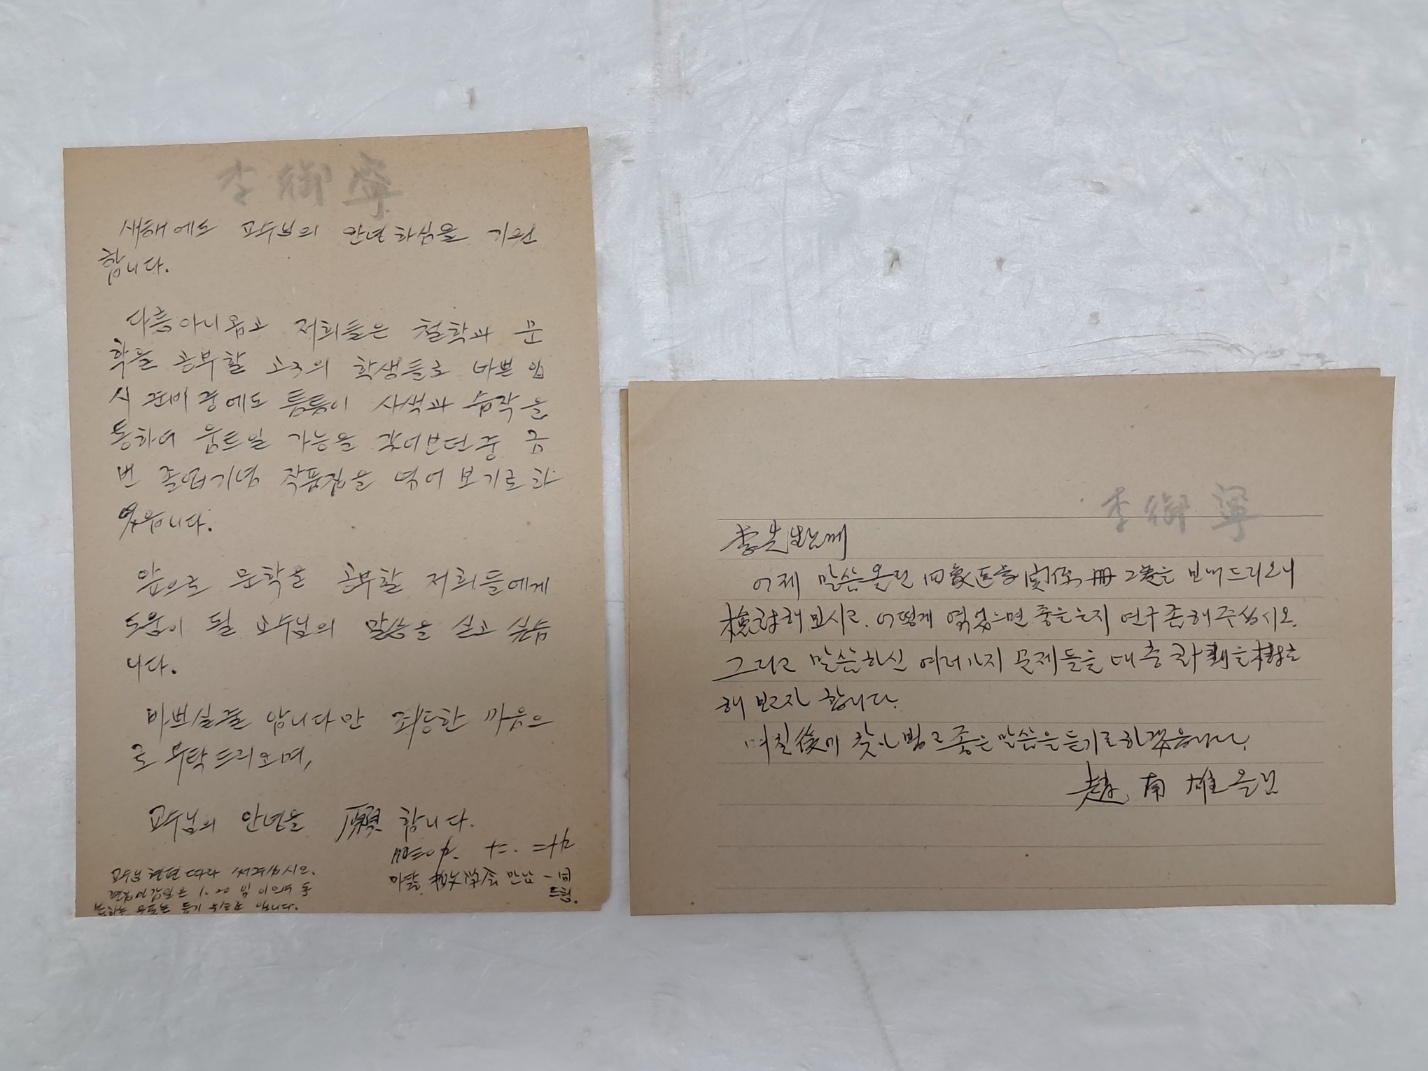 李御寧
새해에도 교수님의 안녕하심을 기원
합니다.
다름아니옵고 저희들은 철학과 문
학을 공부할 고3의 학생들로 바쁜 입
시 준비 중에도 틈틈이 사색과 습작을
통하여 움트일 가능을 찾어보던 중 금
번 졸업기념 작품집을 엮어 보기로 하
였읍니다.
앞으로 문학을 공부할 저희들에게
도움이 될 교수님의 말씀을 싣고 싶습
니다.
바쁘실줄 압니다만 죄송한 마음으
로 부탁드리오며,
교수님의 안녕을 願 합니다.
十二. 二十九
만남 一同
드림.
교수님 편편 따라 써주십시오.
1. 20 일
李御寧
李先生님께
어제 말씀올린 四象医学 関係 冊 2卷을 보내드리오니
検討해 보시고, 어떻게 엮었으면 좋을는지 연구좀해주십시오.
그리고 말씀하신 여러가지 문제들을 대충
해 보고자 합니다.
며칠後에 찾아뵙고 좋은 말씀을 듣기로하겠읍니다.
趙南雄 올님